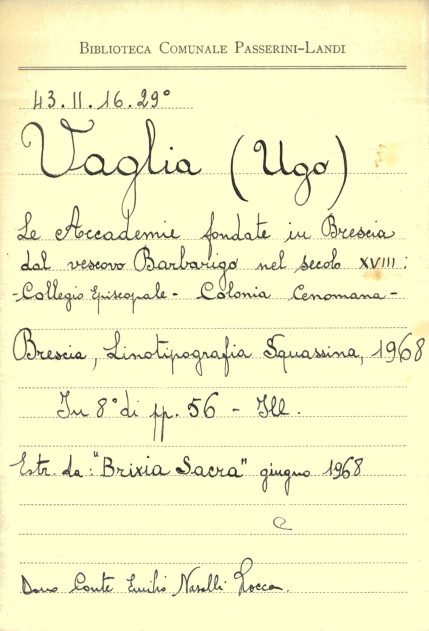 BIBLIOTECA COMUNALE PASSERINI-LANDI
43.II.16.29°
Vaglia (Ugo)
Le Accademie fondate in Brescia
dal vescovo Barbarigo nel secolo XVIII:
-Collegio Episcopale - Colonia Cenomana -
Brescia, Linotipografia Squassina, 1968
In 8° di pp. 56 - Ill.
Estr. da: "Brixia Sacra" giugno 1968
Dono Conte Emilio Nasalli Rocca.